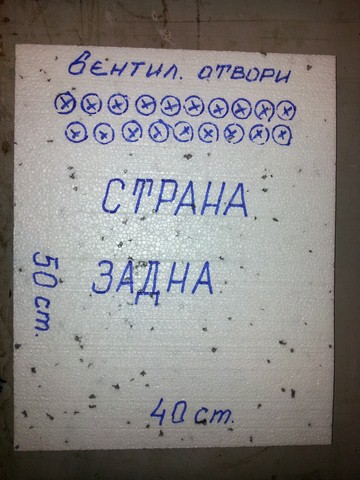 вентил. отвори
СТРАНА
ЗАДНА
50 cm.
40 cm.